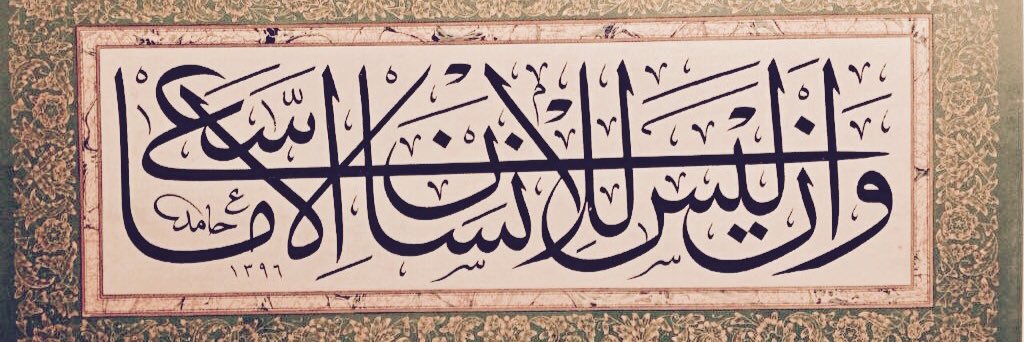 وَاَنْ لَيْسَ لِلْاِنْسَانِ اِلَّا مَا سَعٰى
حامد
١٣٩٦